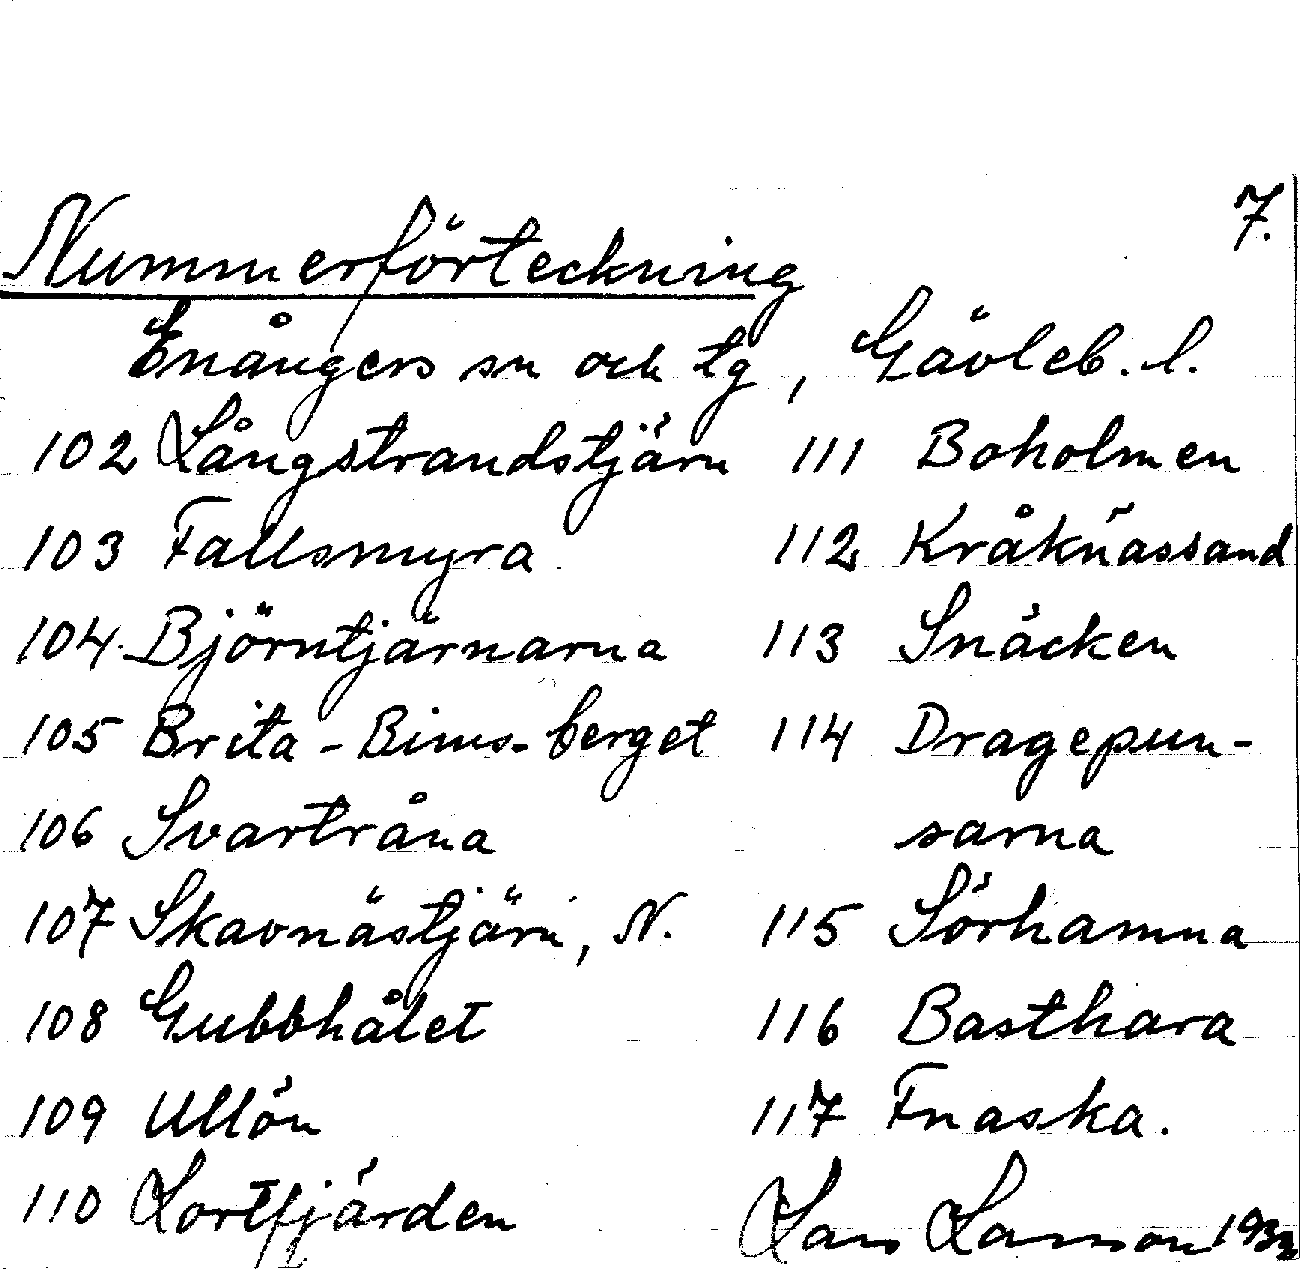 7.
Nummerförteckning
Enångers sn och tg, Gävleb. l.
102 Långstrandstjärn
103 Fallsmyra
104 Björntjärnarna
105 Brita-Bims-berget
106 Svartråna
107 Skavnästjärn, N.
108 Gubbhålet
109 Ullön
110 Lortfjärden
111 Boholmen
112 Kråknässand
113 Snäcken
114 Dragepun-
sarna
115 Sörhamna
116 Basthara
117 Fnaska.
Lars Larsson